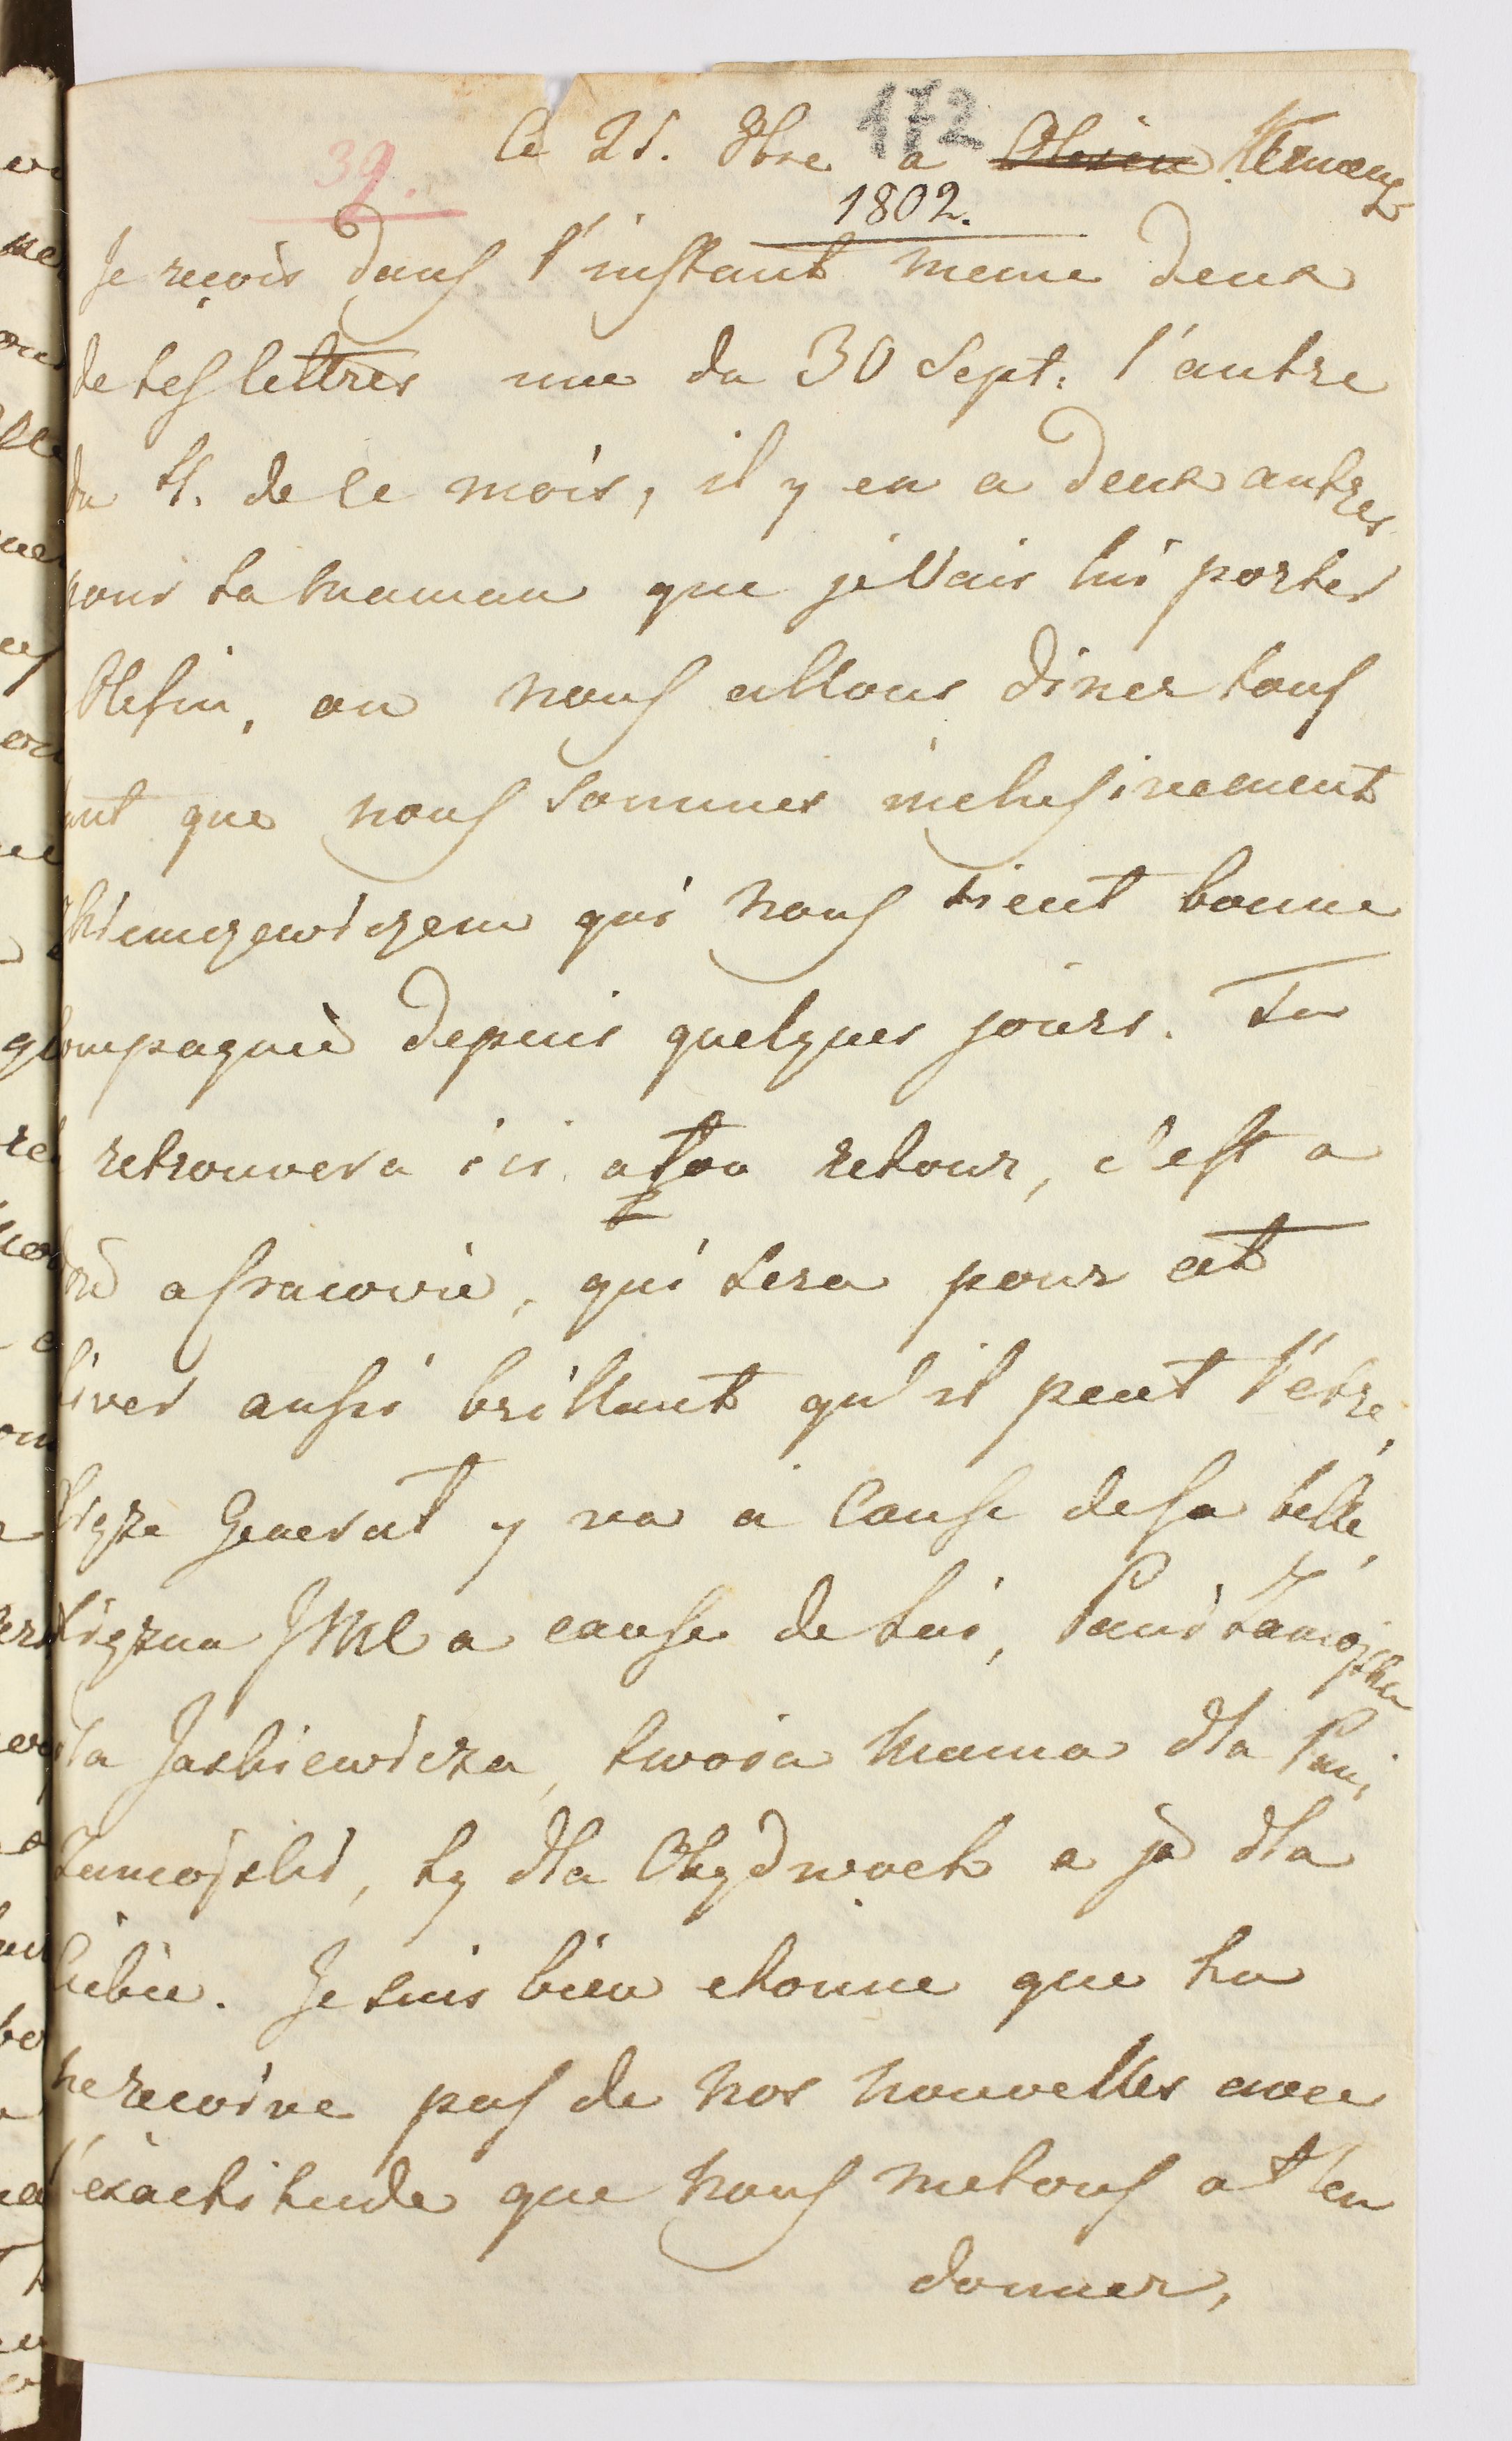 172
39.
le 21. 8bre a Olesin Klemens
1802.
Je reçois dans l'instant meme deux
de tes lettres une du 30 Sept. l'autre
du 4. de ce mois, il y en a deux autres
pour ta maman que je vais lui porter
Olesin, ou nous allons diner tous
tant que nous sommes inclusivement
qui nous tient bonne
compagnie depuis quelques jours. Tu
retrouvera ici a ton retour, c'est a
dire a Cracovie, qui sera pour cet
hiver aussi brillant qu'il peut l'etre,
Xiąże General y va a cause de sa belle,
Xięzna JMC a cause de lui, Pani Zamojska
dla Jaskiewicza, twoia mama dla Pani
Zamojski, ty dla Obydwoch a ja dla
Ciebie. Je suis bien etonne que tu
ne recoive pas de nos nouvelles avec
l'exactitude que nous metons a t'en
donner,